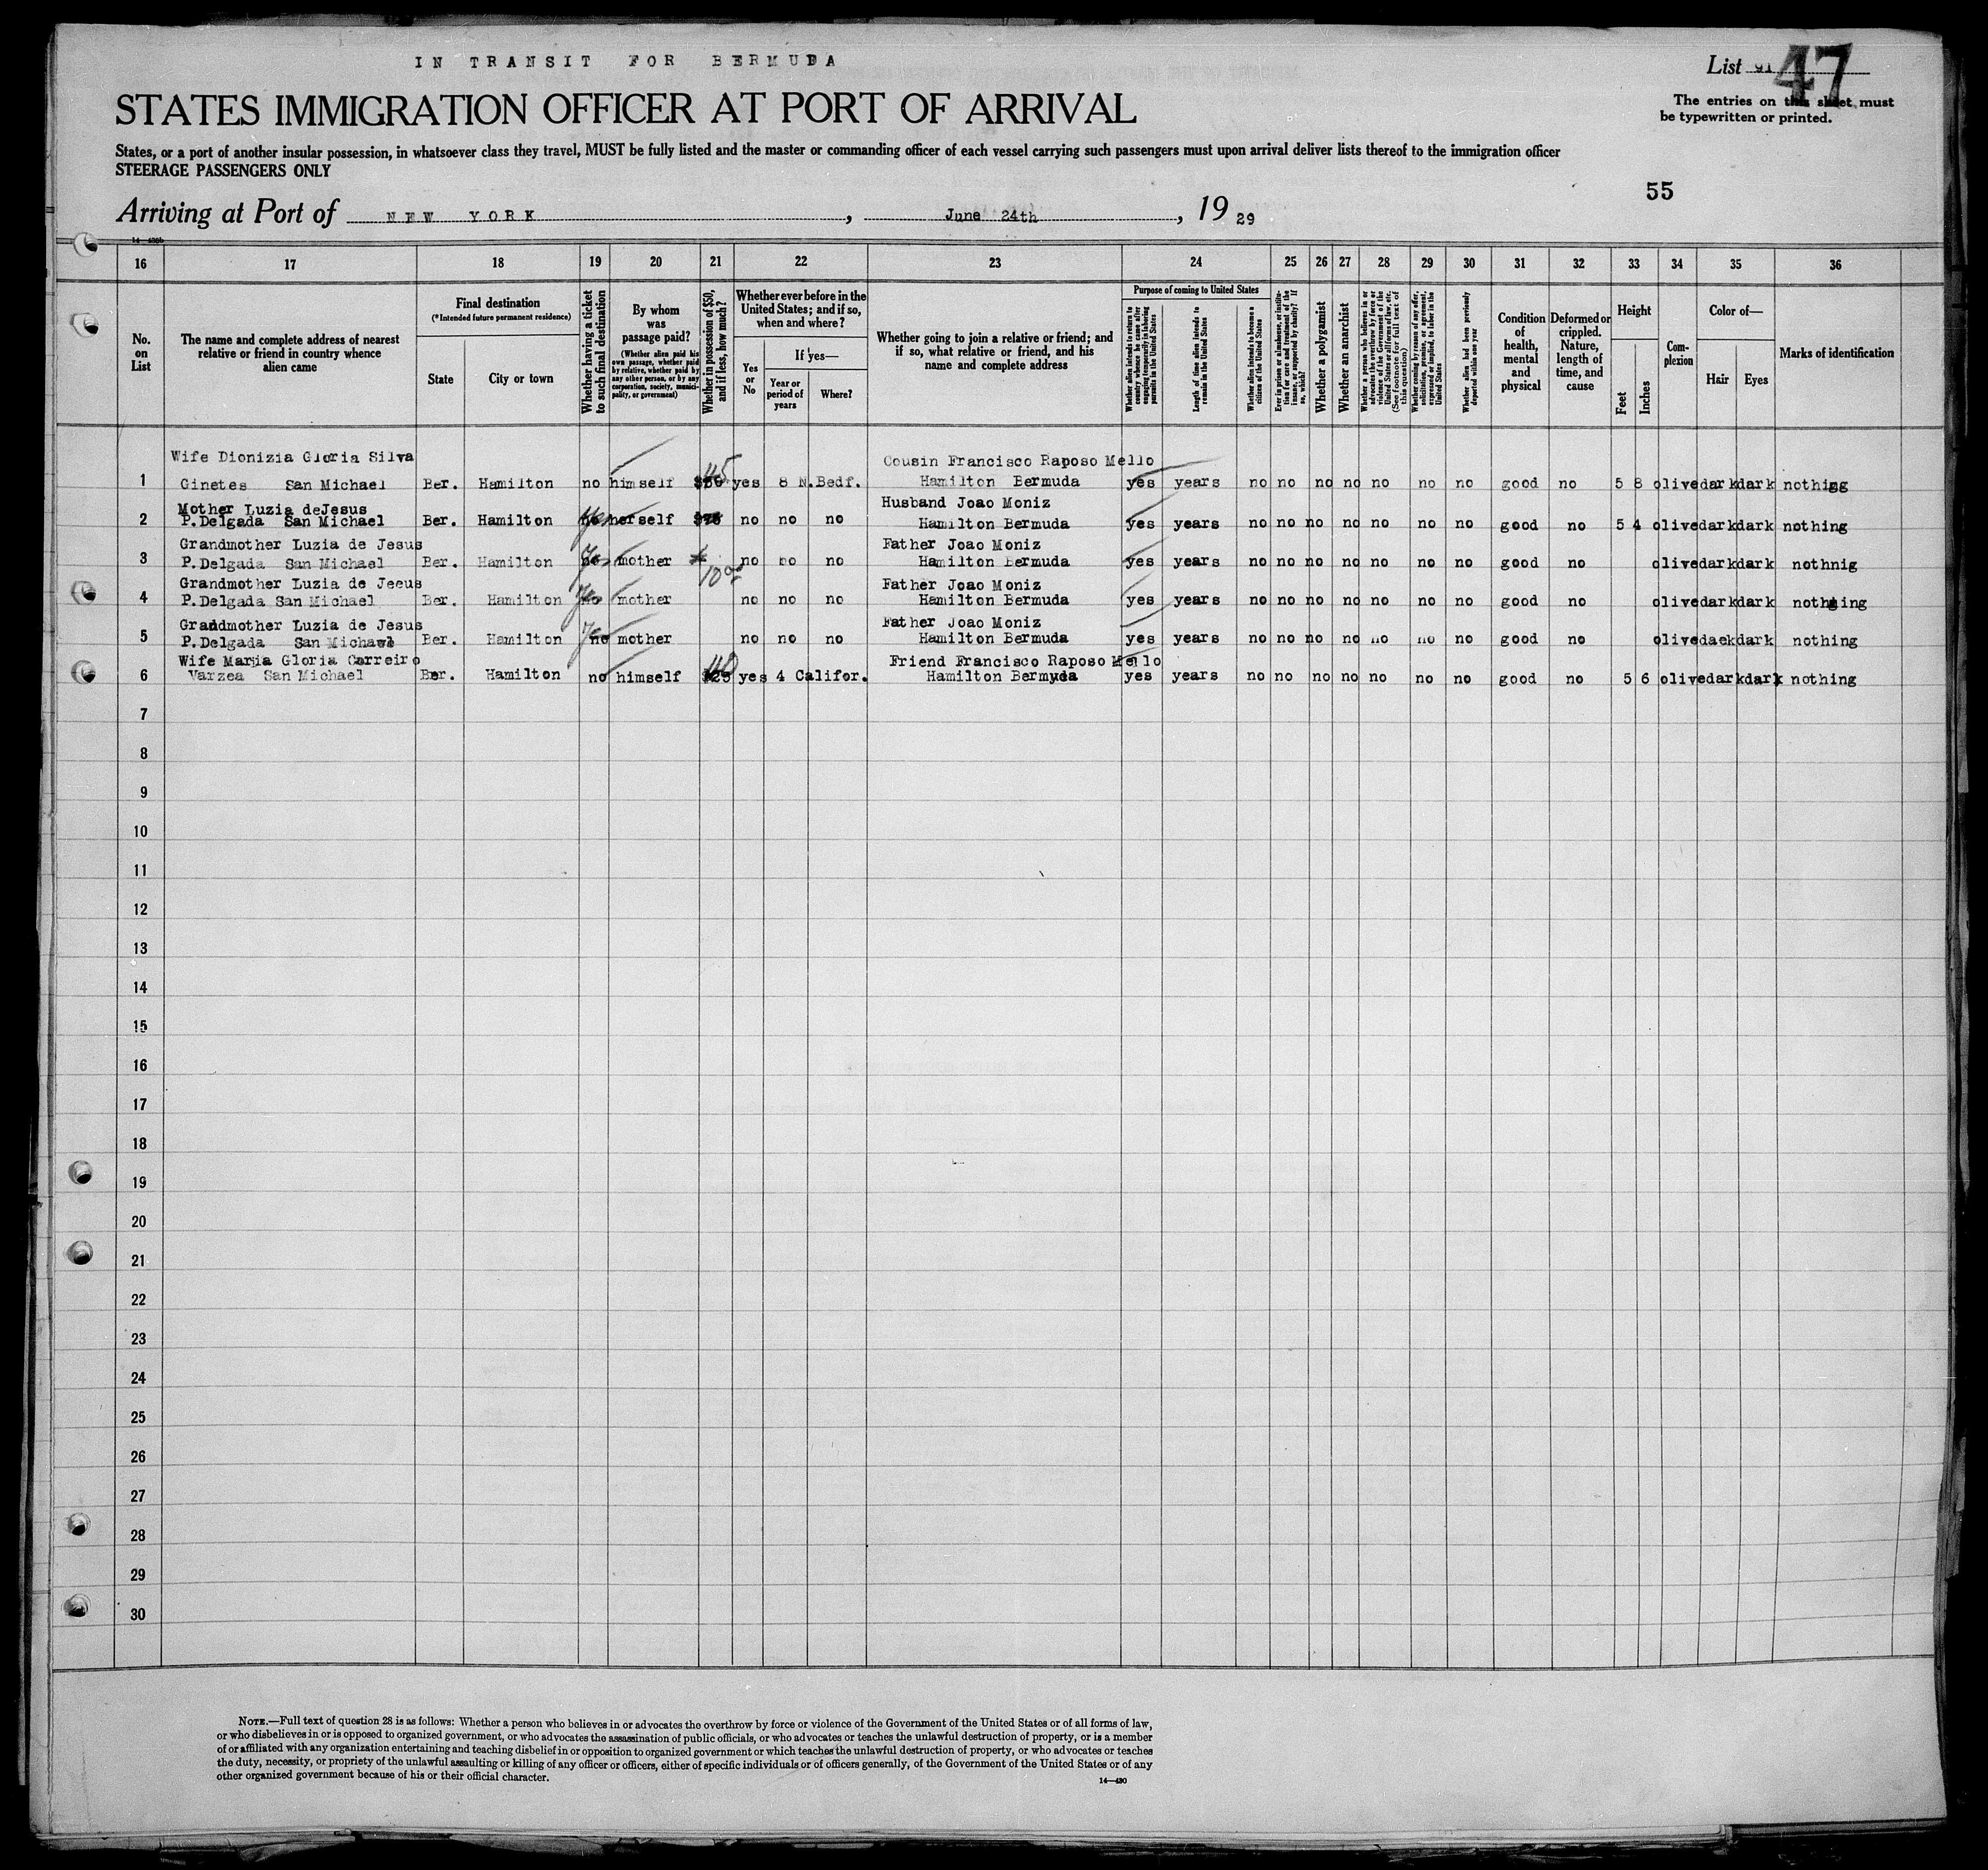 IN TRANSIT FOR BERMUDA
List 91 47
STATES IMMIGRATION OFFICER AT PORT OF ARRIVAL
The entries on this sheet must
be typewritten or printed.
States, or a port of another insular possession, in whatsoever class they travel, MUST be fully listed and the master or commanding officer of each vessel carrying such passengers must upon arrival deliver lists thereof to the immigration officer
STEERAGE PASSENGERS ONLY
55
Arriving at Port of NEW YORK, June 24th, 19 29
14—430b
16 17 18 19 20 21 22 23 24 25 26 27 28 29 30 31 32 33 34 35 36
No. on List
The name and complete address of nearest relative or friend in country whence alien came
Final destination
(*Intended future permanent residence)
State
City or town
Whether having a ticket to such final destination
By whom was passage paid?
(Whether alien paid his own passage, whether paid by relative, whether paid by any other person, or by any corporation, society, municipality, or government)
Whether in possession of $50, and if less, how much?
Whether ever before in the United States; and if so, when and where?
Yes or No
If yes—
Year or period of years
Where?
Whether going to join a relative or friend; and if so, what relative or friend, and his name and complete address
Purpose of coming to United States
Whether alien intends to return to country whence he came after engaging temporarily in laboring pursuits in the United States
Length of time alien intends to remain in the United States
Whether alien intends to become a citizen of the United States
Ever in prison or almshouse, or institution for care and treatment of the insane, or supported by charity? If so, which?
Whether a polygamist
Whether an anarchist
Whether a person who believes in or advocates the overthrow by force or violence of the Government of the United States or all forms of law, etc. (See footnote for full text of this question)
Whether coming by reason of any offer, solicitation, promise, or agreement, expressed or implied, to labor in the United States
Whether alien had been previously deported within one year
Condition of health, mental and physical
Deformed or crippled. Nature, length of time, and cause
Height
Feet
Inches
Complexion
Color of—
Hair
Eyes
Marks of identification
Wife Dionizia Gloria Silva Cousin Francisco Raposo Mello
1 Ginetes San Michael Ber. Hamilton no himself 45 yes 8 N.Bedf. Hamilton Bermuda yes years no no no no no no no good no 5 8 olive dark dark nothing
Mother Luzia deJesus Husband Joao Moniz
2 P.Delgada San Michael Ber. Hamilton no yes herself no no no Hamilton Bermuda yes years no no no no no no no good no 5 4 olive dark dark nothing
Grandmother Luzia de Jesus Father Joao Moniz
3 P.Delgada San Michael Ber. Hamilton no yes mother 10 no no no Hamilton Bermuda yes years no no no no no no no good no olive dark dark nothnig
Grandmother Luzia de Jeeus Father Joao Moniz
4 P.Delgada San Michael Ber. Hamilton no yes mother no no no Hamilton Bermuda yes years no no no no no no no good no olive dark dark nothging
Grandmother Luzia de Jesus Father Joao Moniz
5 P.Delgada San Michawl Ber. Hamilton no mother no no no Hamilton Bermuda yes years no no no no no no no good no olive daek dark nothing
Wife Maria Gloria Correiro Friend Francisco Raposo Mello
6 Varzea San Michael Ber. Hamilton no himself $25 40 yes 4 Califor. Hamilton Bermuda yes years no no no no no no no good no 5 6 olive dark dark nothing
7
8
9
10
11
12
13
14
15
16
17
18
19
20
21
22
23
24
25
26
27
28
29
30
NOTE.—Full text of question 28 is as follows: Whether a person who believes in or advocates the overthrow by force or violence of the Government of the United States or of all forms of law,
or who disbelieves in or is opposed to organized government, or who advocates the assassination of public officials, or who advocates or teaches the unlawful destruction of property, or is a member
of or affiliated with any organization entertaining and teaching disbelief in or opposition to organized government or which teaches the unlawful destruction of property, or who advocates or teaches
the duty, necessity, or propriety of the unlawful assaulting or killing of any officer or officers, either of specific individuals or of officers generally, of the Government of the United States or of any
other organized government because of his or their official character.
14—430